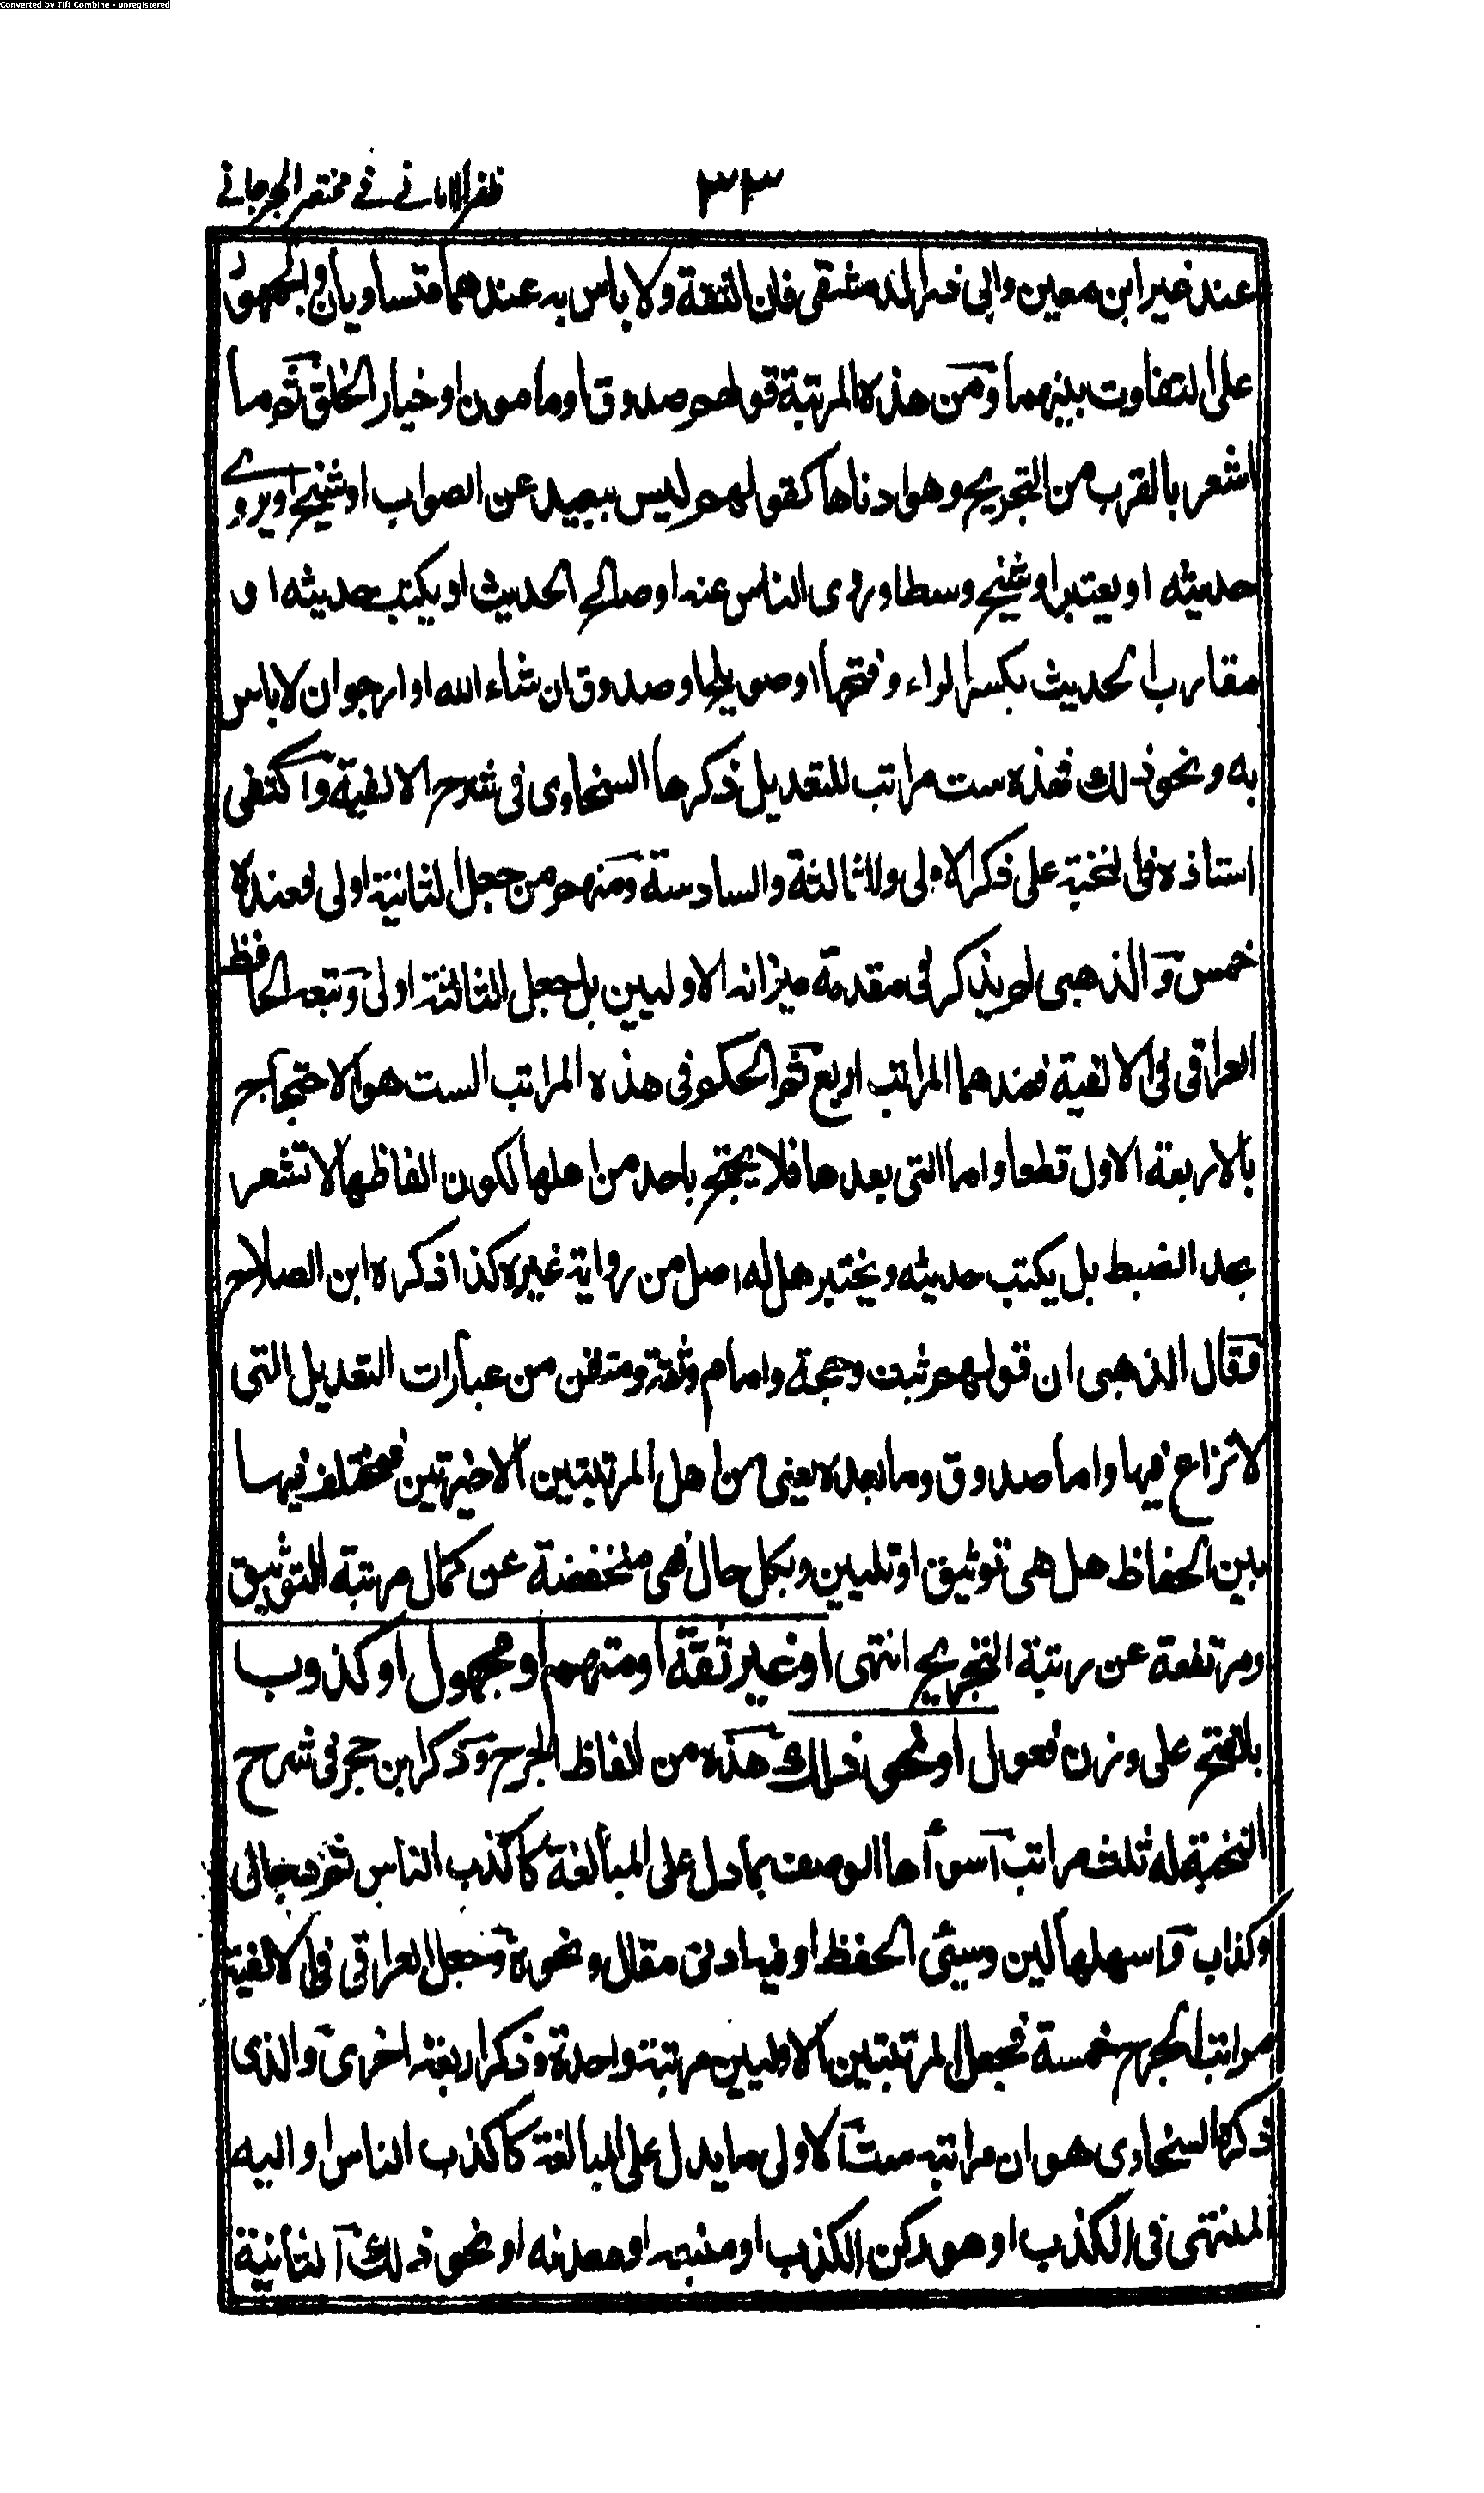 Converted by Tiff Combine - unregistered
٣٣
ظفر الامانے فے مختصر الجرجانے
عند غير ابن معين وابى زرعة الدمشقى فان الثقة ولا باس به عندهما متساويان والجمهور
على التفاوت بينهما ومن هذه المرتبة قولهم صدوق او مامون او خيار الخلق ثم ما
اشعر بالقرب من التجريح وهو ادناها كقولهم ليس ببعيد عن الصواب او شيخ او يروے
حديثه او يعتبر او شيخ وسط او روى الناس عنه او صالح الحديث او يكتب حديثه او
مقارب الحديث بكسر الراء وفتحها او صويلح او صدوق ان شاء الله او ارجو ان لا باس
به ونحو ذلك فهذه ست مراتب للتعديل ذكرها السخاوى فى شرح الالفية واكتفى
استاذه فى النخبة على ذكر الاولى والثالثة والسادسة ومنهم من جعل الثانية اولى فعنده
خمس والذهبى لم يذكر فى مقدمة ميزانه الاوليين بل جعل الثالثة اولى وتبعه الحافظ
العراقى فى الالفية فعندهما المراتب اربع ثم الحكم فى هذه المراتب الست هو الاحتجاج
بالاربعة الاول قطعا واما التى بعدها فلا يحتج باحد من اهلها لكون الفاظها لا تشعر
بحد الضبط بل يكتب حديثه ويختبر هل له اصل من رواية غيره كذا ذكره ابن الصلاح
فقال الذهبى ان قولهم ثبت وحجة وامام وثقة ومتقن من عبارات التعديل التى
لا نزاع فيها واما صدوق وما بعده يعنى من اهل المرتبتين الاخيرتين فمختلف فيها
بين الحفاظ هل هى توثيق او تليين وبكل حال فهى منخفضة عن كمال مرتبة التوثيق
ومرتفعة عن رتبة التجريح انتهى او غير ثقة او متهم او مجهول او كذوب
بالفتح على وزن فعول او نحو ذلك هذه من الفاظ الجرح وذكر ابن حجر فى شرح
النخبة له ثلث مراتب اسوأها الوصف بما دل على المبالغة كاكذب الناس ثم دجال
او كذاب واسهلها لين وسيئ الحفظ او فيه ادنى مقال ونحوه وجعل العراقى فى الالفية
مراتب الجرح خمسة فجعل المرتبتين الاوليين مرتبة واحدة وذكر اربعة اخرى والذى
ذكره السخاوى هو ان مراتبه ست الاول ما يدل على المبالغة كاكذب الناس او اليه
المنتهى فى الكذب او هو ركن الكذب او منبعه او معدنه او نحو ذلك الثانية